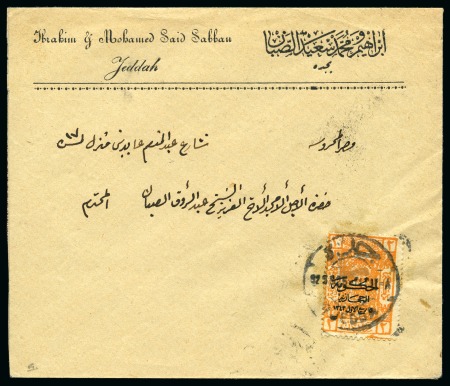 Ibrahim & Mohamed Said Sabban
Jeddah
ابراهيم ومحمد سعيد الصبان
بجده
مصر المحروسه
بشارع عبد المنعم عابدين منزل نمرة ١٧
حضرة الاجل الامجد الاخ العزيز الشيخ عبد الرؤف الصبان
المحترم
جدة
الحكومة
الحجازية